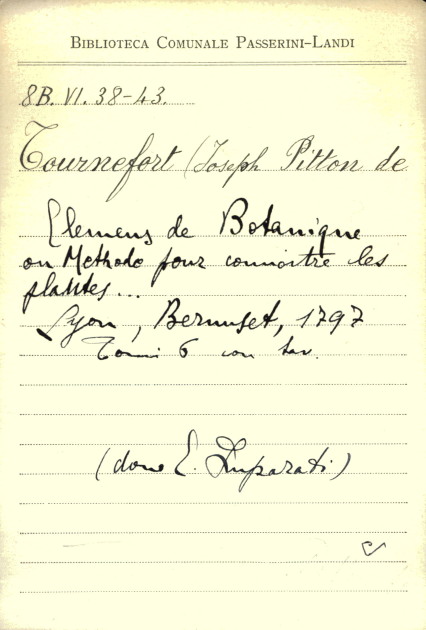 BIBLIOTECA COMUNALE PASSERINI-LANDI
8B. VI. 38-43.
Tournefort (Joseph Pitton de
Elemens de Botanique
ou Methode pour connoitre les
plantes...
Lyon, Bernuset, 1797
Tomi 6 con tav.
(dono E. Imparati)